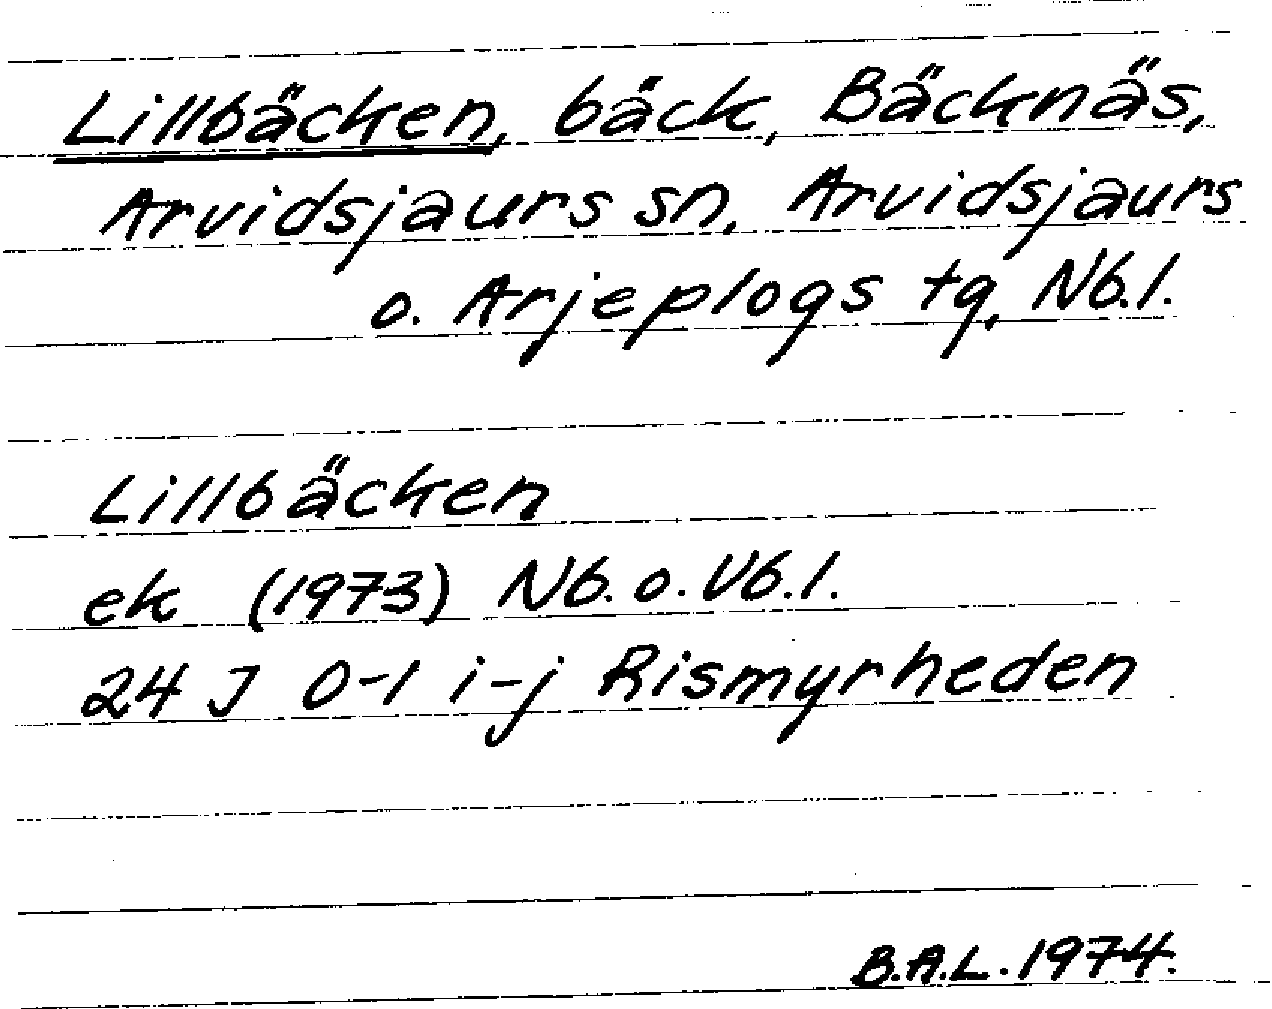 Lillbäcken, bäck, Bäcknäs,
Arvidsjaurs sn, Arvidsjaurs
o. Arjeplogs tg, Nb.l.
Lillbäcken
ek (1973) Nb. o. Vb.l.
24 J 0-1 i-j Rismyrheden
B.A.L. 1974.